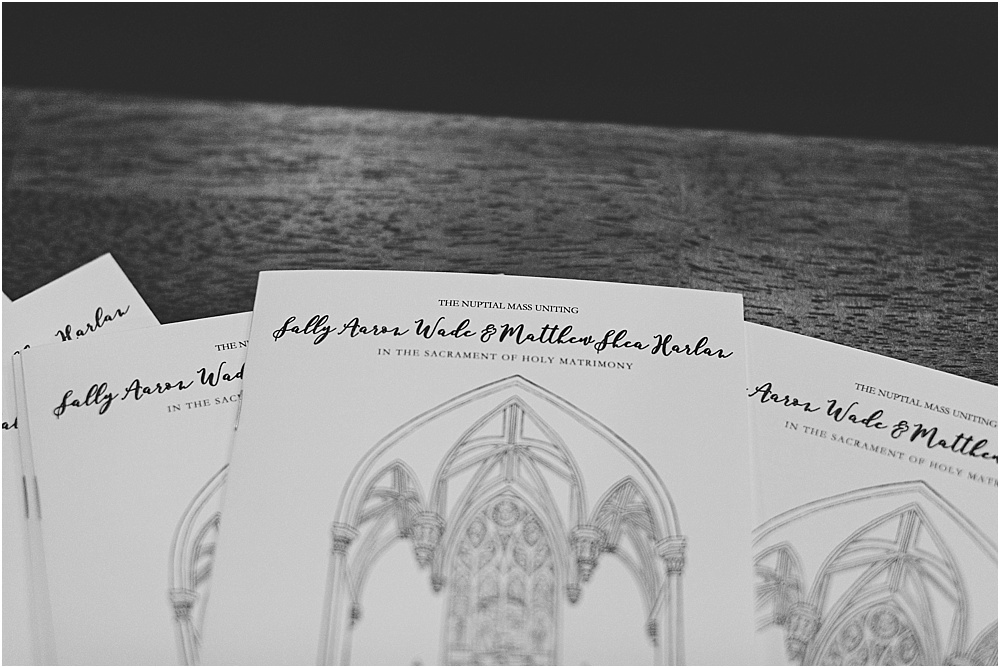 THE NUPTIAL MASS UNITING
Sally Aaron Wade & Matthew Shea Harlan
IN THE SACRAMENT OF HOLY MATRIMONY
Harlan
THE N
Sally Aaron Wad
IN THE SAC
THE NUPTIAL MASS UNITING
Aaron Wade & Matthew
IN THE SACRAMENT OF HOLY MATR